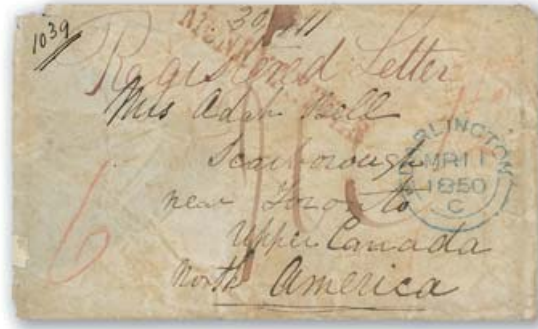 1039
Registered Letter
Mrs Adah Bell
Scarborough
near Toronto
Upper Canada
North America
6
DARLINGTON
MR 11
1850
C